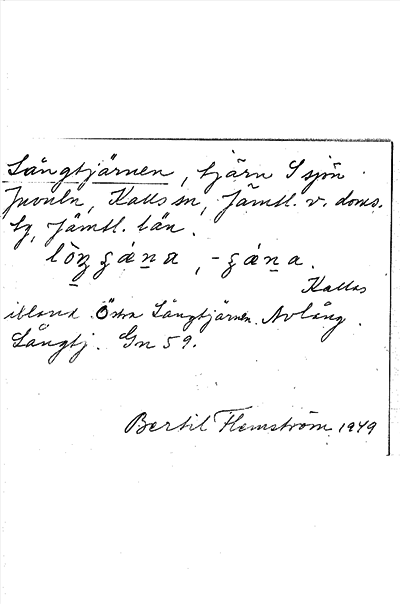 Långtjärnen, tjärn S sjön
Juvuln, Kalls sn, Jämtl. v. doms.
tg, Jämtl. län.
Kallas
ibland Östra Långtjärnen. Avlång.
Långtj. Gn 59.
Bertil Flemström 1949